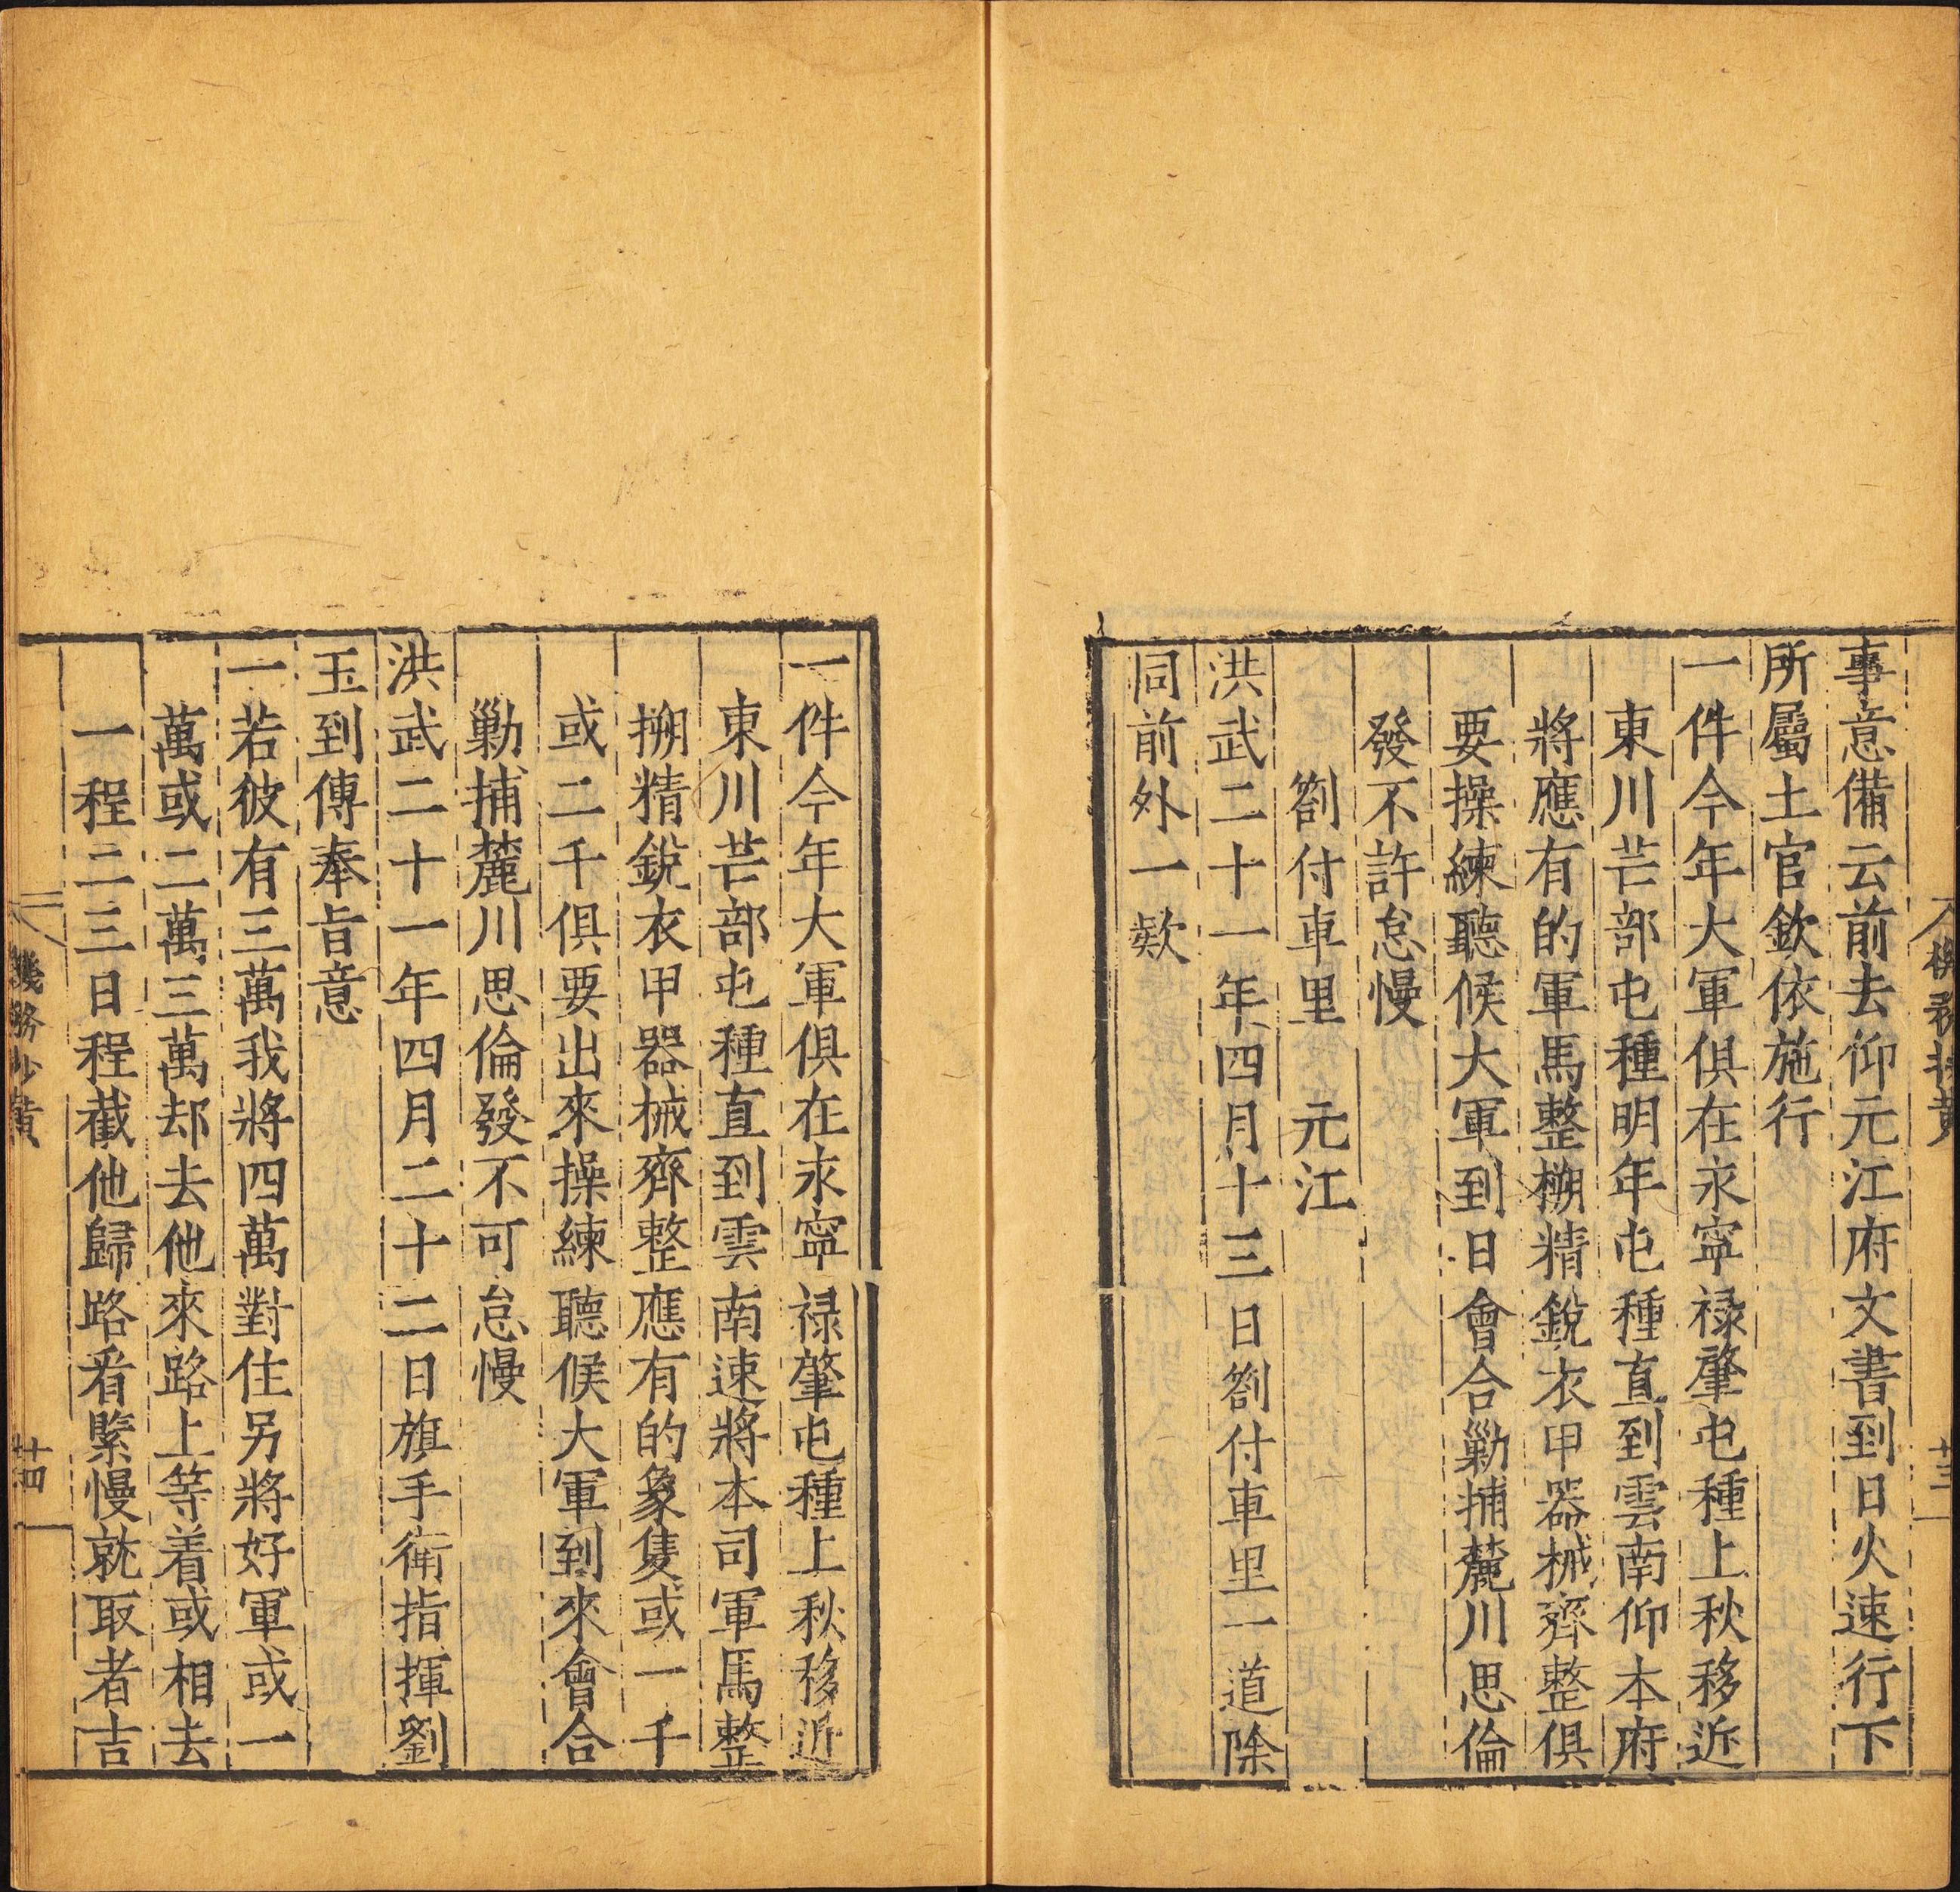 事意備云前去仰元江府文書到日火速行下
所屬土官欽依施行
一件今年大軍俱在永寧禄肇屯種上秋移近
東川芒部屯種明年屯種直到雲南仰本府
將應有的軍馬整搠精銳衣甲器械齊整俱
要操練聽候大軍到日會合勦捕麓川思倫
發不許怠慢
劄付車里 元江
洪武二十一年四月十三日劄付車里一道除
同前外一欵
一件今年大軍俱在永寧禄肇屯種上秋移近
東川芒部屯種直到雲南速將本司軍馬整
搠精銳衣甲器械齊整應有的象隻或一千
或二千俱要出來操練聽候大軍到來會合
勦捕麓川思倫發不可怠慢
洪武二十一年四月二十二日旗手衛指揮劉
玉到傳奉旨意
一若彼有三萬我將四萬對住另將好軍或一
萬或二萬三萬却去他來路上等着或相去
一程二三日程截他歸路看緊慢就取者吉
機務抄黄 廿四